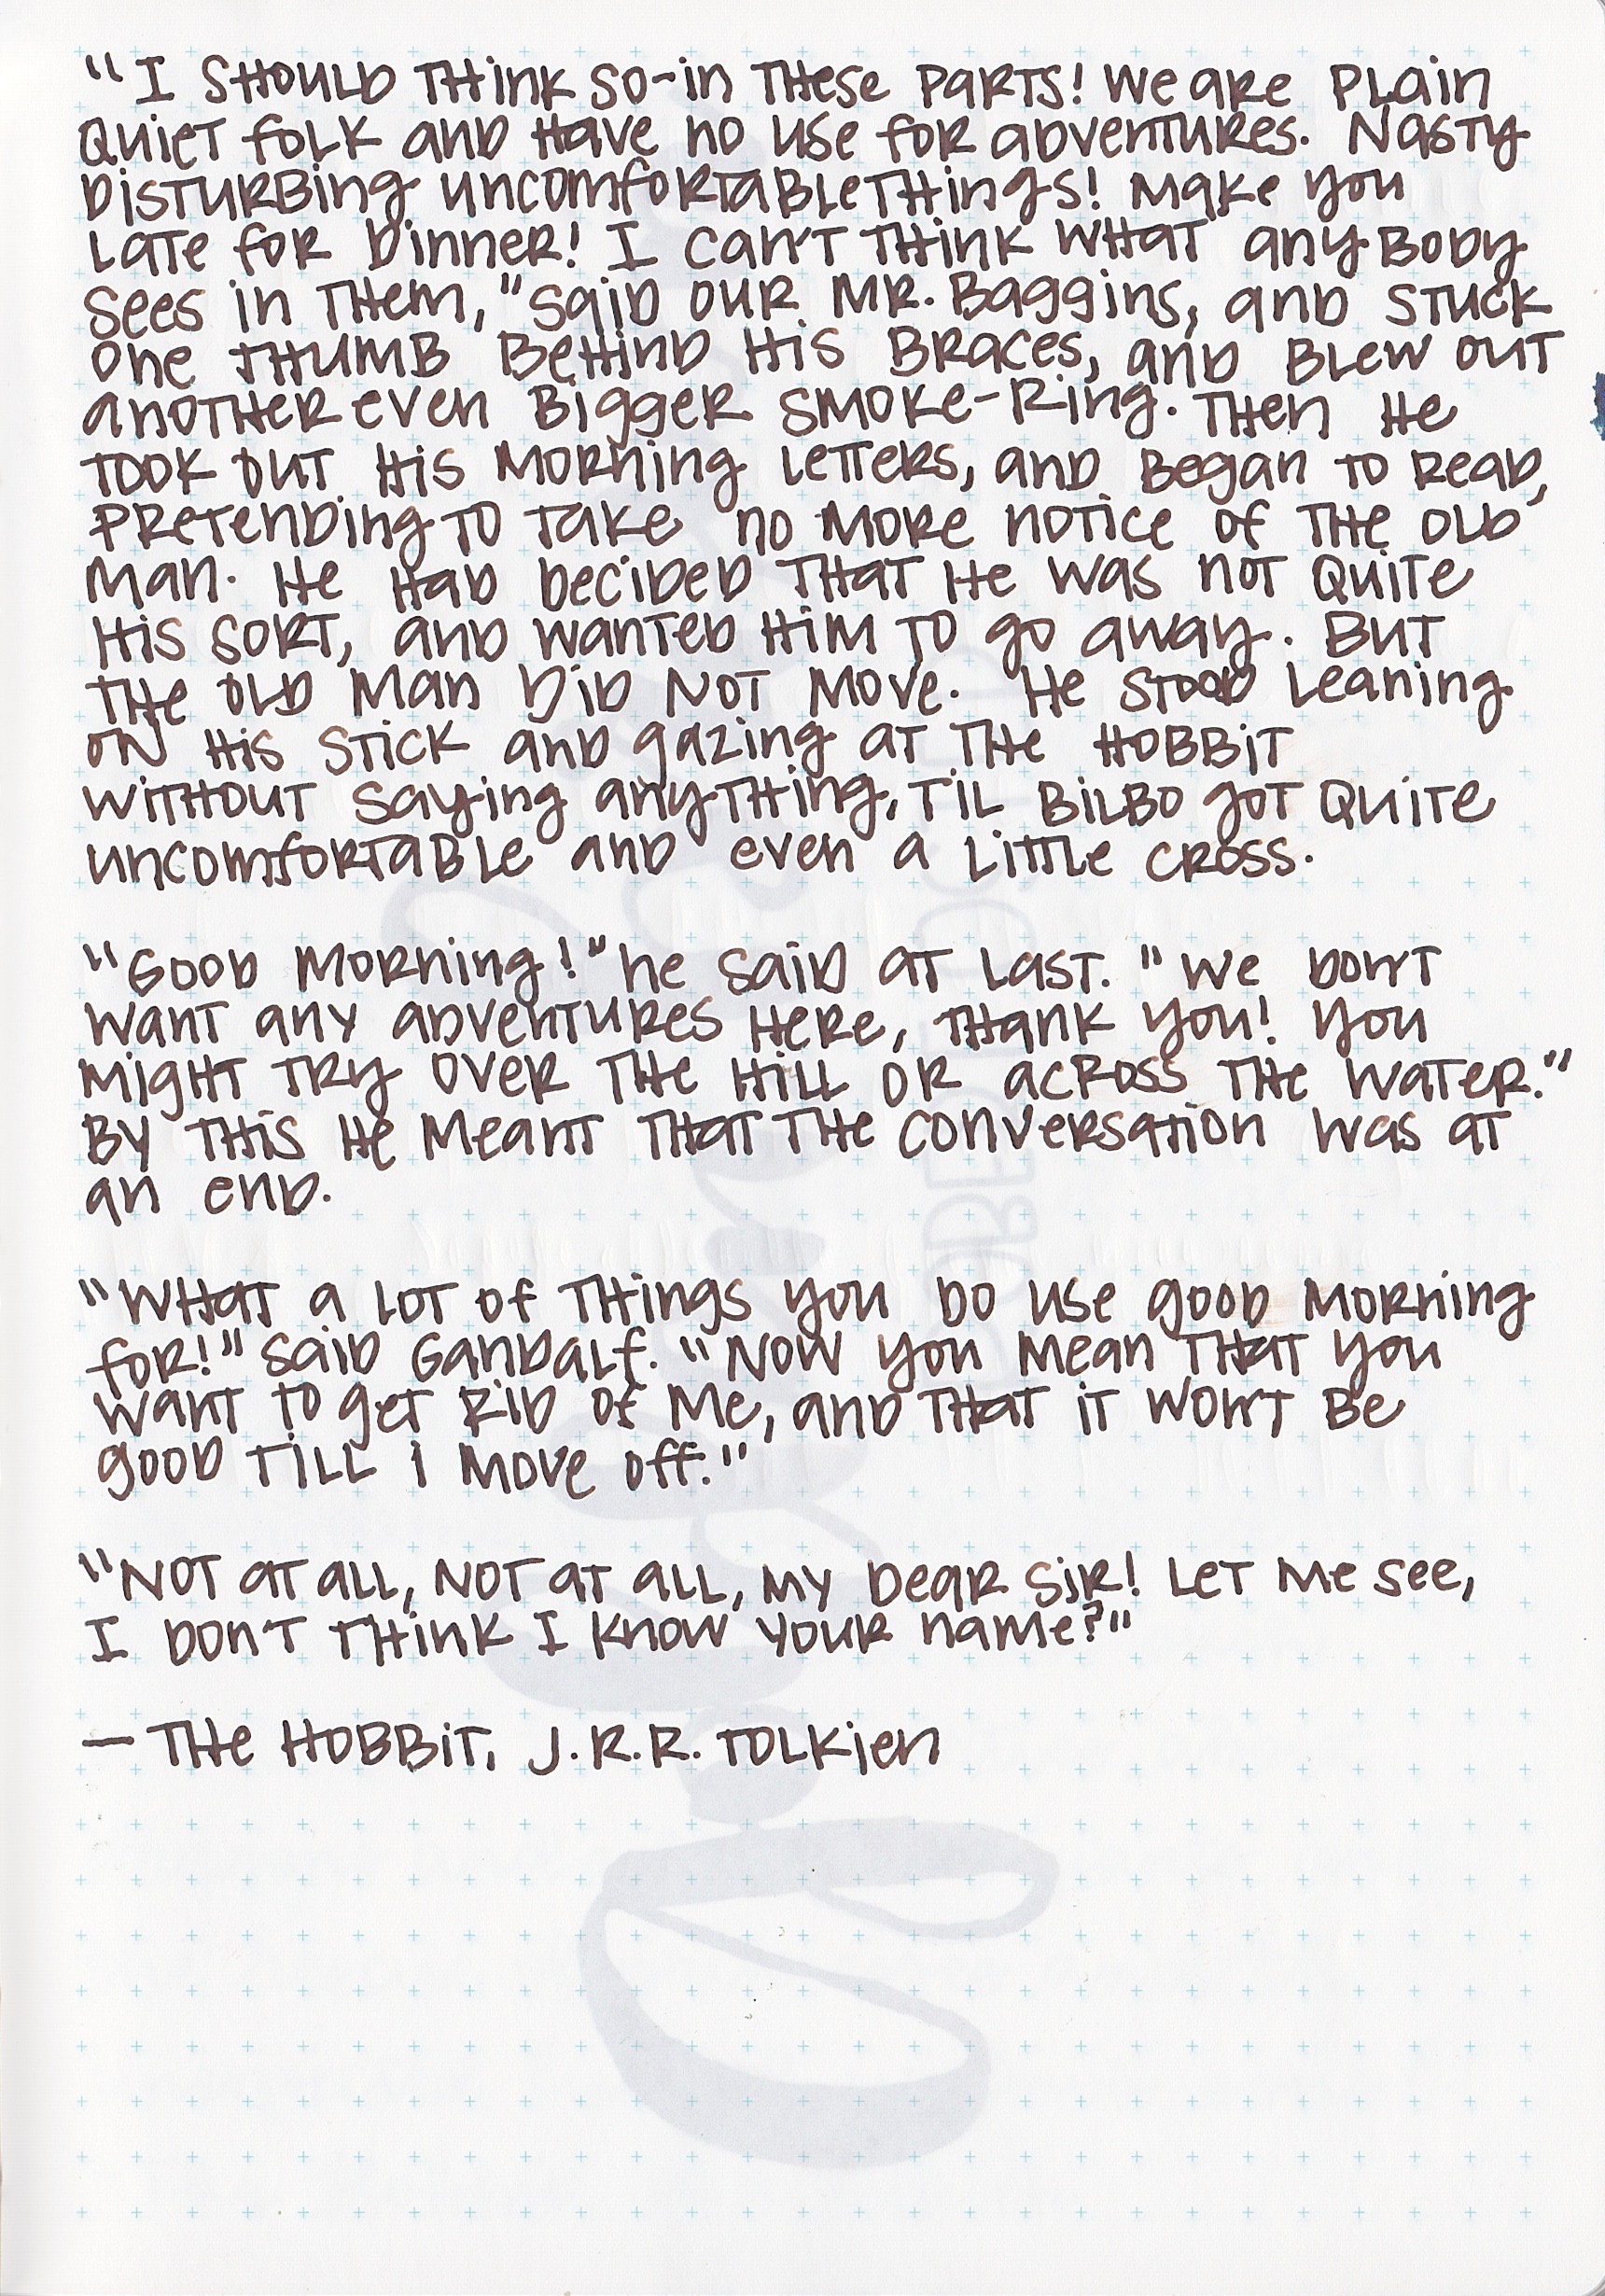 "I should think so-in these parts! We are plain
quiet folk and have no use for adventures. Nasty
disturbing uncomfortable things! Make you
late for dinner! I can't think what anybody
sees in them," said our Mr. Baggins, and stuck
one thumb behind his braces, and blew out
another even bigger smoke-ring. Then he
took out his morning letters, and began to read,
pretending to take no more notice of the old
man. He had decided that he was not quite
his sort, and wanted him to go away. But
the old man did not move. He stood leaning
on his stick and gazing at the hobbit
without saying anything, til Bilbo got quite
uncomfortable and even a little cross.
"Good morning!" he said at last. "We don't
want any adventures here, thank you! You
might try over the hill or across the water."
By this he meant that the conversation was at
an end.
"What a lot of things you do use good morning
for!" said Gandalf. "Now you mean that you
want to get rid of me, and that it won't be
good till I move off."
"Not at all, not at all, my dear sir! Let me see,
I don't think I know your name?"
— The Hobbit, J.R.R. Tolkien